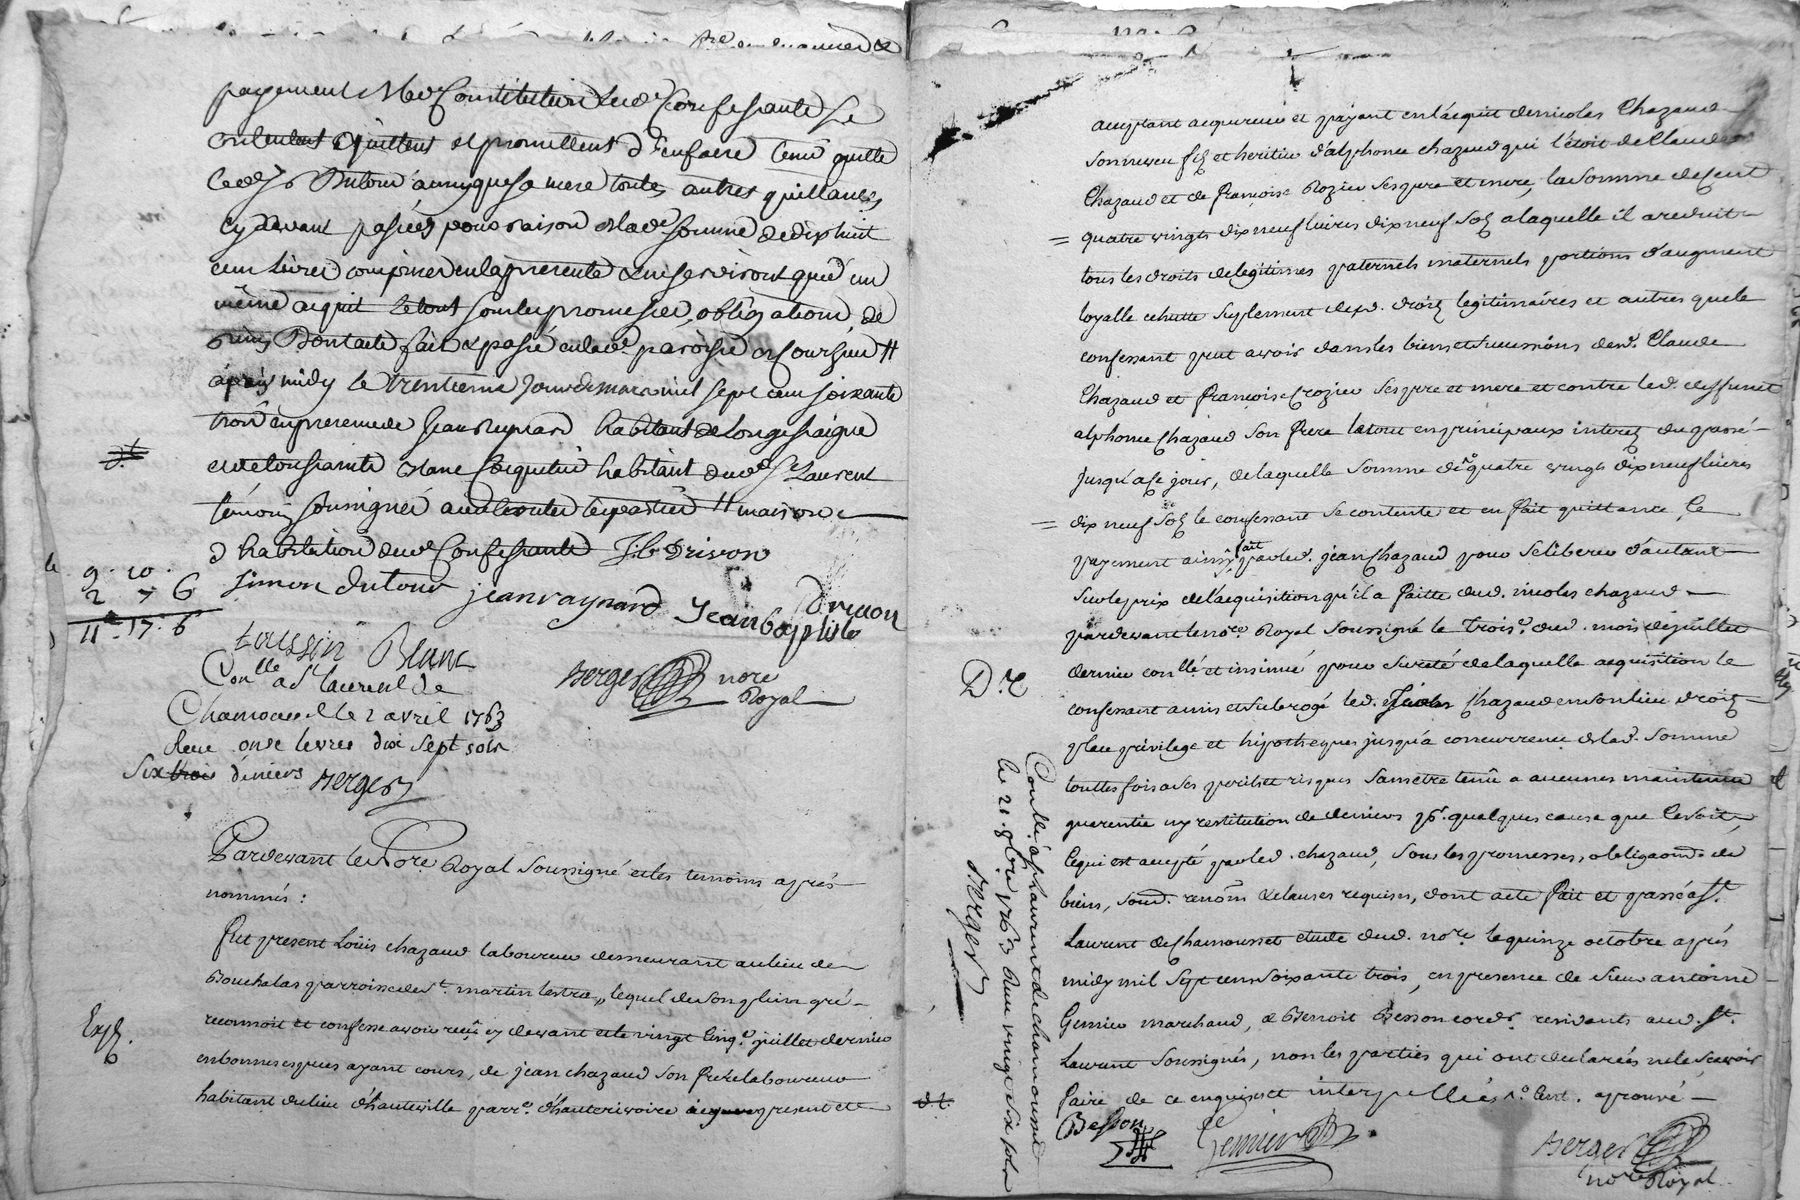 payement & led. Constitution lesd. Confessants se
contentent & quittent et promettent d'en faire tenir quitte
led. Sr Dutour ainsy que sa mere toutes autres quittances
cy devant passées pour raison de lad. somme de dix huit
cent livres comprises en la presente & ne serviront que d'un
même acquit le tout sous les promesses, obligations, de
biens Dont acte fait & passé en lad. paroisse //
après midy le trentieme jour de mars mil sept cent soixante
trois en presence de Jean Reynard habitant de Longessaigne
et de Toussaint Blanc habitant dud. St Laurent
témoins soussignés // maison
d'habitation dud. Confessants J. B. Drivon
9 - 10
2 7 6
11 - 17 - 6
Simon dutour jean raynard Jean baptiste Drivon
toussain Blanc
Conllé a St laurent de
Chamousset le 2 avril 1763
Reçu onze livres dix sept sols
six trois deniers Berger
Berger nore
Royal
Pardevant le Nore. Royal Soussigné et les temoins après
nommés :
Fut present Loüis chazaud laboureur demeurant au lieu de
Bouchalas parroisse de St. martin lestra, lequel de son plein gré
reconnoit et confesse avoir reçû cy devant et le vingt cinq.e juillet dernier
en bonnes especes ayant cours, de jean chazaud son frere laboureur
habitant du lieu d'hauteville parr.e d'hauterivoire present et
Exp.
acceptant acquereur et payant en l'acquit de nicolas Chazaud
son neveu fils et heritier d'alphonse chazaud qui l'étoit de Claude
Chazaud et de françoise Rozier ses pere et mere, la somme de cent
quatre vingts dix neuf livres dix neuf sols a laquelle il a reduit
tous les droits de legitimes paternels maternels portions d'augment
loyalle echutte suplement desd. droits legitimaires et autres que le
confessant peut avoir dans les biens et successions desd. Claude
Chazaud et françoise Crozier ses pere et mere et contre led. deffunct
alphonse chazaud son frere le tout en principaux interets du passé
jusqu'a ce jour, de laquelle somme de quatre vingts dix neuf livres
dix neuf sols le confessant se contente et en fait quittance, Le
payement ainsy fait par led. jean chazaud pour se liberer d'autant
sur le prix de l'acquisition qu'il a faitte dud. nicolas chazaud
pardevant le nore. Royal soussigné le trois.e dud. mois de juillet
dernier conllé et insinué pour sureté de laquelle acquisition le
confessant a mis et subrogé led. Chazaud en son lieu droits
place privilege et hipotheques jusqu'a concurrence de lad. somme
touttes fois a ses perils et risques sans etre tenû a aucunes maintenue
guarentie ny restitution de deniers pr. quelques cause que ce soit,
Ce qui est accepté par led. chazaud, sous les promesses, obligaons. de
biens, soum. renons. & clauses requises, dont acte fait et passé a St.
Laurent de Chamousset etude dud. nore. le quinze octobre après
midy mil sept cens soixante trois, en presence de sieur antoine
Gemier marchand, & Benoit Besson cordr. residants aud. St.
Laurent soussignés, non les parties qui ont declarées ne le sçavoir
faire de ce enquises et interpellées aprouvé
Besson Gemier Berger
nore Royal
Conllé a St laurent de chamousset
le 21. 8bre 1763 Reçu vingt six sols
Berger